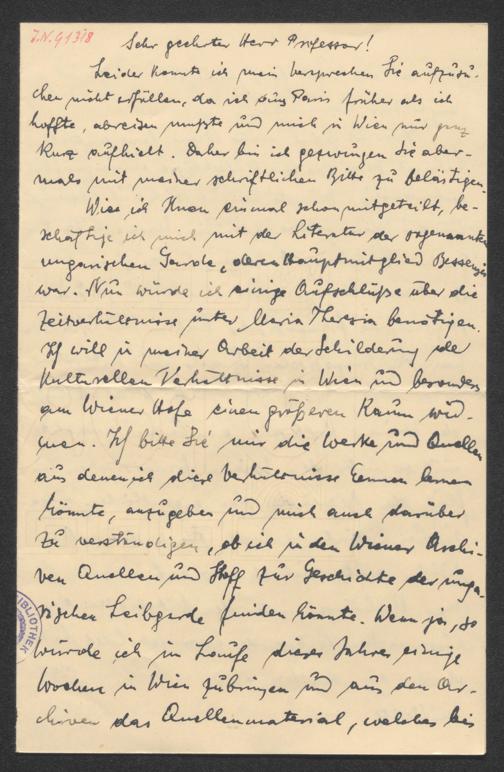 J.N. 91318
Sehr geehrter Herr Professor!
Leider konnte ich mein Versprechen Sie aufzusu-
chen nicht erfüllen, da ich aus Paris früher als ich
hoffte, abreisen mußte und mich in Wien nur ganz
kurz aufhielt. Daher bin ich gezwungen Sie aber-
mals mit meiner schriftlichen Bitte zu belästigen.
Wie ich Ihnen einmal schon mitgeteilt, be-
schäftige ich mich mit der Literatur der sogenannten
ungarischen Garde, deren Hauptmitglied Bessenyei
war. Nun würde ich einige Aufschlüße über die
Zeitverhältnisse unter Maria Theresia benötigen.
Ich will in meiner Arbeit der Schilderung der
kulturellen Verhältnisse in Wien und besonders
am Wiener Hofe einen größeren Raum wid-
men. Ich bitte Sie mir die Werke und Quellen
aus denen ich diese Verhältnisse kennen lernen
könnte, anzugeben und mich auch darüber
zu verständigen, ob ich in den Wiener Archi-
ven Quellen und Stoff zur Geschichte der unga-
rischen Leibgarde finden könnte. Wenn ja, so
würde ich im Laufe dieses Jahres einige
Wochen in Wien zubringen und aus den Ar-
chiven das Quellenmaterial, welches bis
BIBLIOTHEK